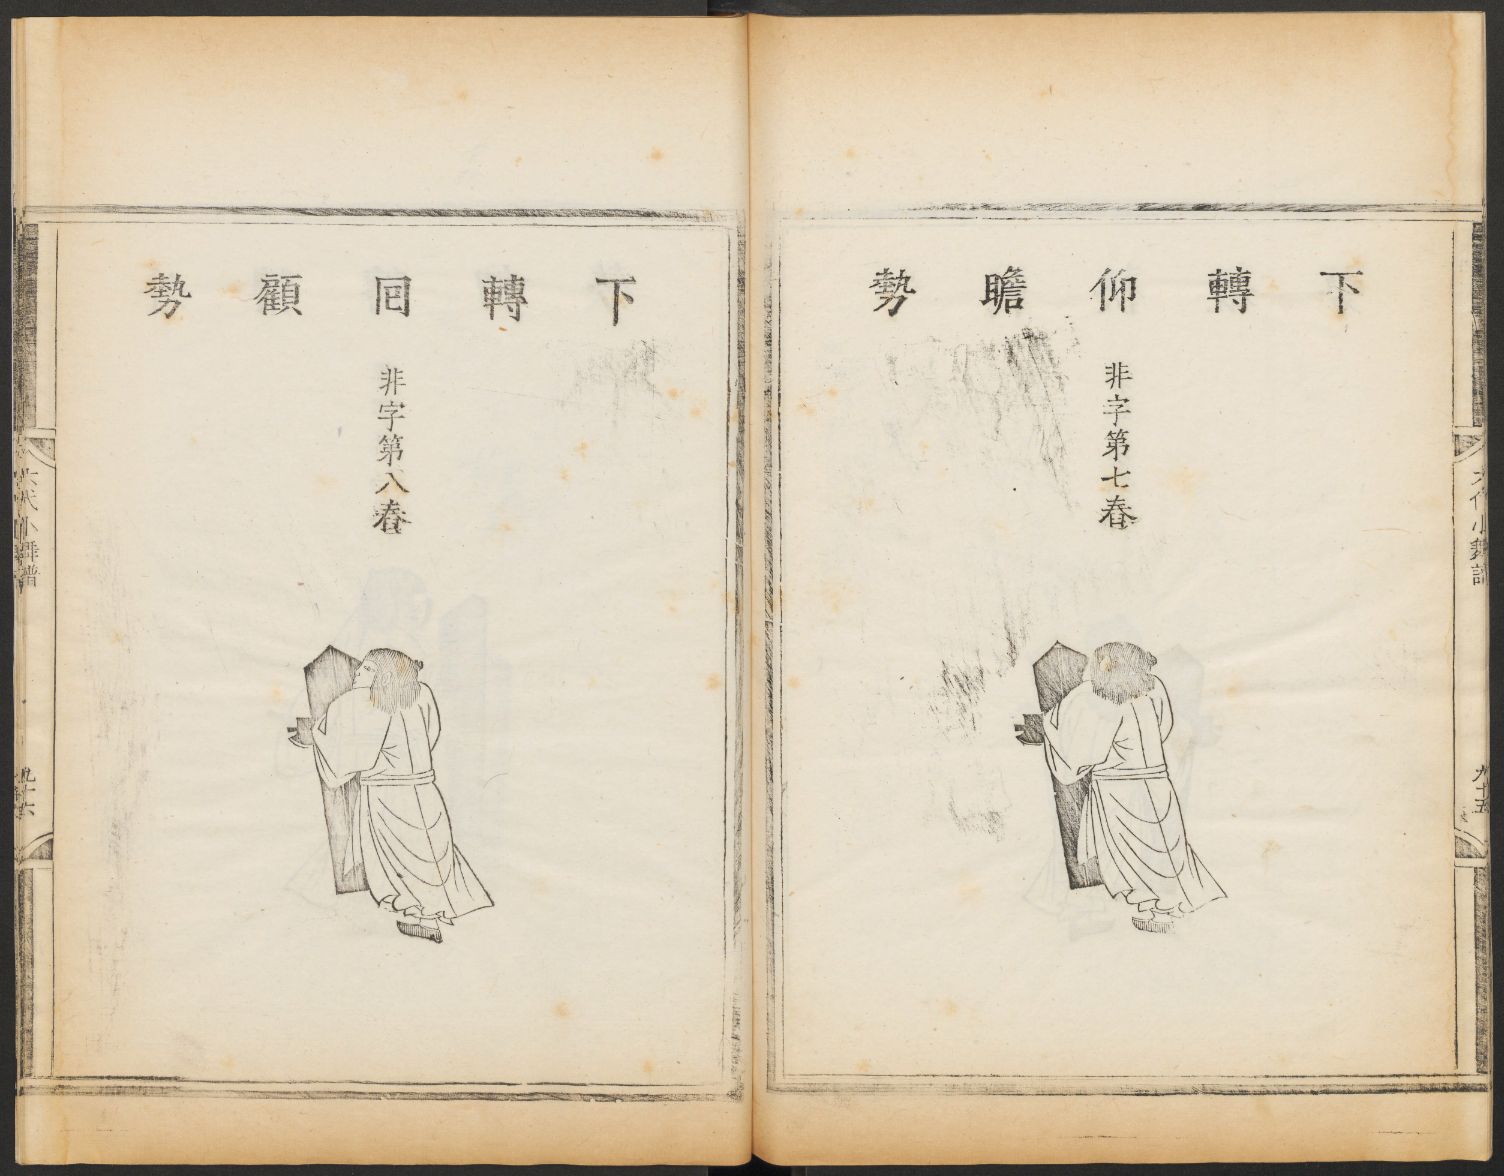 下轉仰瞻勢
非字第七舂
六代小舞譜
九十五
下轉囘顧勢
非字第八舂
六代小舞譜
九十六